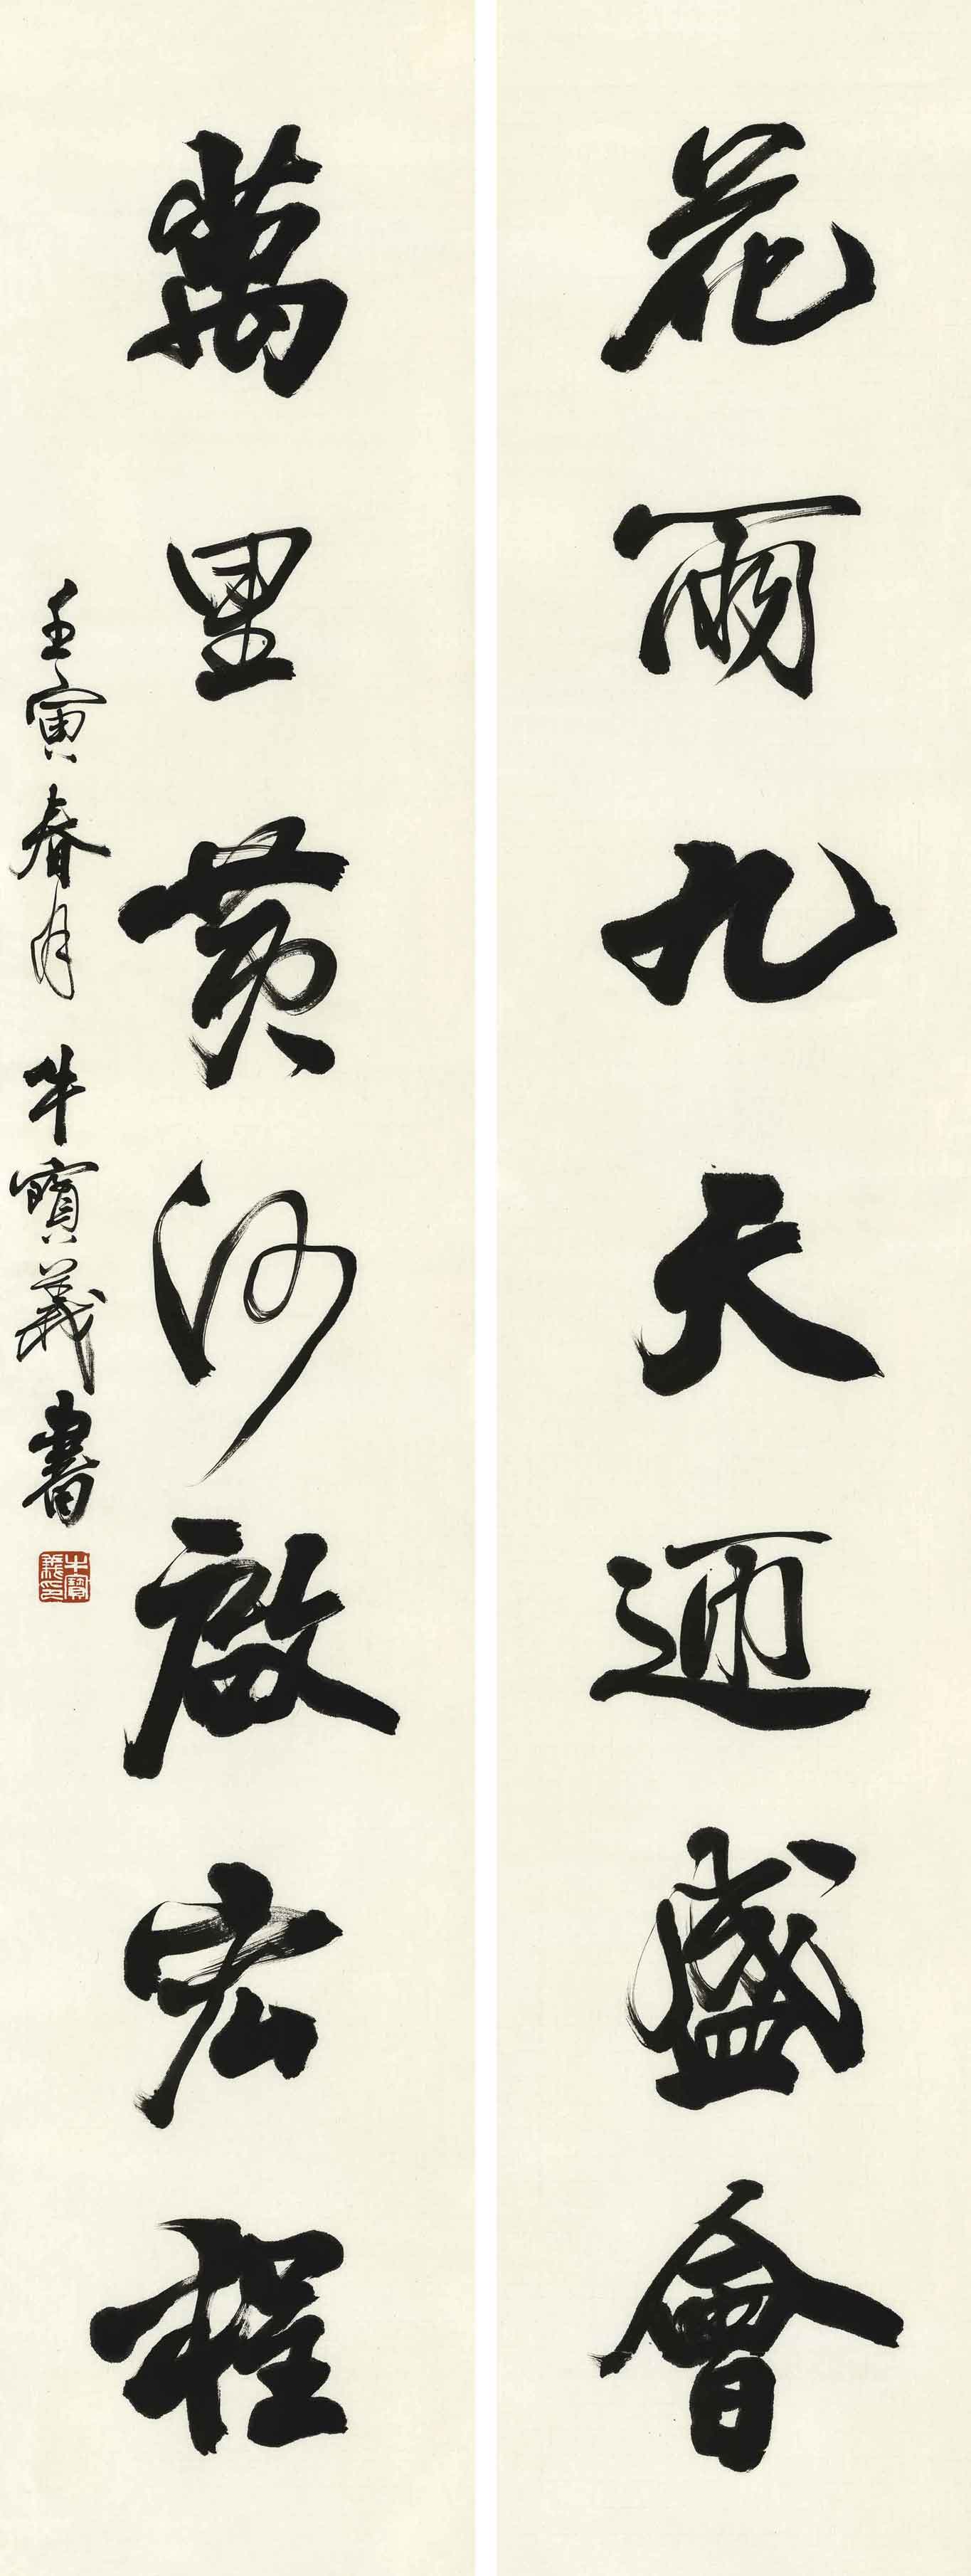 花雨九天迎盛會
萬里黃河啟宏程
壬寅春月 牛寶義書
牛寶義印